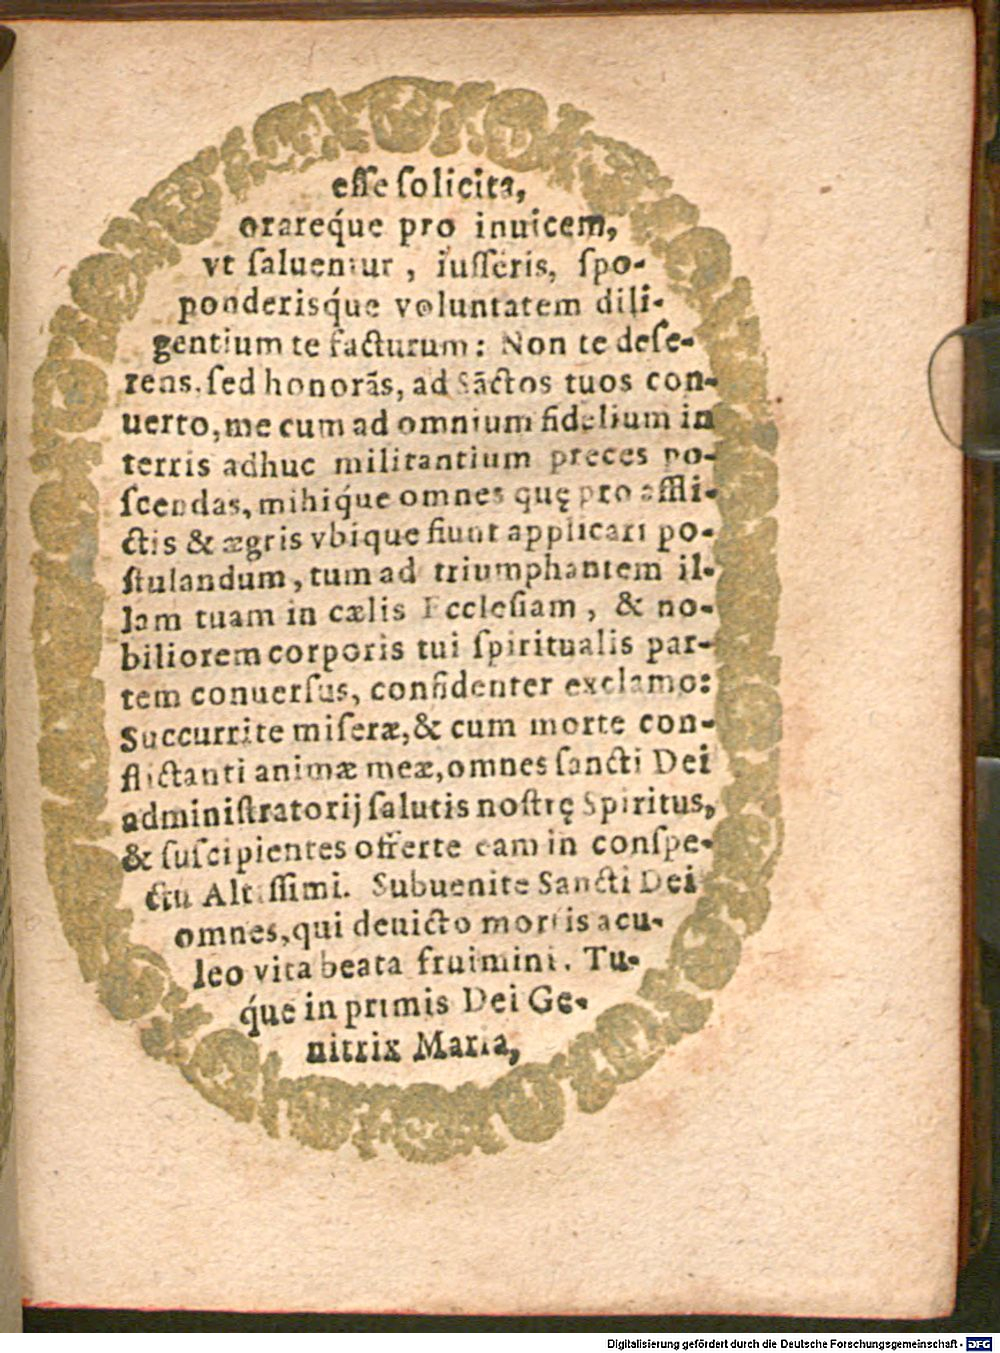 eſſe ſolicita,
orareq́ue pro inuicem,
vt ſaluentur , iuſſeris, ſpo-
ponderisq́ue voluntatem dili-
gentium te facturum: Non te deſe-
rens, ſed honorãs, ad Sãctos tuos con-
uerto, me cum ad omnium fidelium in
terris adhuc militantium preces po-
ſcendas, mihiq́ue omnes quę pro affli-
ctis & ægris vbique fiunt applicari po-
ſtulandum, tum ad triumphantem il-
lam tuam in cælis Eccleſiam , & no-
biliorem corporis tui ſpiritualis par-
tem conuerſus, confidenter exclamo:
Succurrite miſeræ, & cum morte con-
flictanti animæ meæ, omnes ſancti Dei
adminiſtratorij ſalutis noſtrę Spiritus,
& ſuſcipientes offerte eam in conſpe-
ctu Altiſſimi. Subuenite Sancti Dei
omnes, qui deuicto mortis acu-
leo vita beata fruimini. Tu-
q́ue in primis Dei Ge-
nitrix Maria,
Digitalisierung gefördert durch die Deutsche Forschungsgemeinschaft - DFG